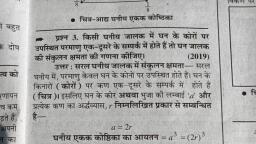 • चित्र–आद्य घनीय एकक कोष्ठिका
प्रश्न 3. किसी घनीय जालक में घन के कोणों पर
उपस्थित परमाणु एक-दूसरे के सम्पर्क में होते हैं तो घन जालक
की संकुलन क्षमता की गणना कीजिए। (2019)
उत्तर : सरल घनीय जालक में संकुलन क्षमता— सरल
घनीय में, परमाणु केवल घन के कोनों पर उपस्थित होते हैं। घन के
किनारों ( कोरों ) पर कण एक-दूसरे के सम्पर्क में होते हैं
( चित्र ) इसलिए घन के कोर अथवा भुजा की लम्बाई 'a' और
प्रत्येक कण का अर्द्धव्यास, r निम्नलिखित प्रकार से सम्बन्धित
है—
a = 2r
घनीय एकक कोष्ठिका का आयतन = a³ = (2r)³